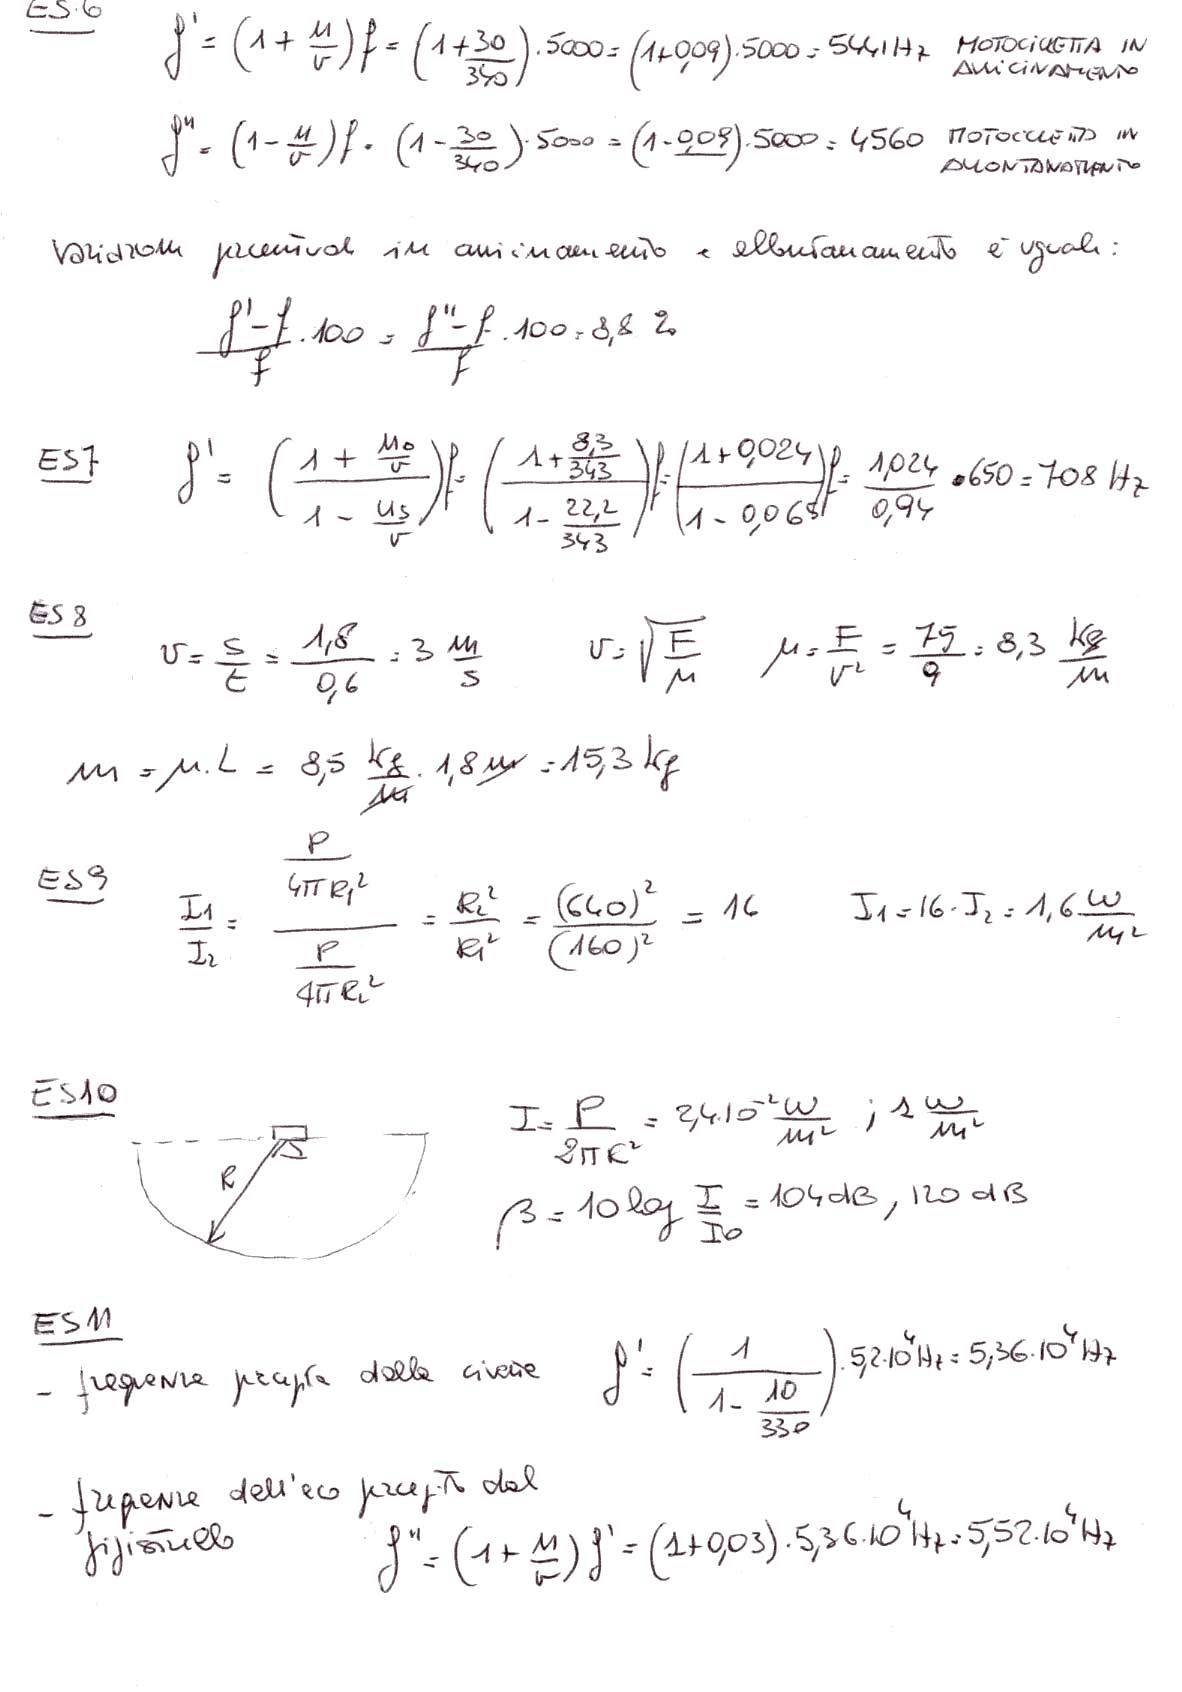 ES.6
f' = (1 + u/v) f = (1 + 30/340) · 5000 = (1+0,09) · 5000 = 5441 Hz MOTOCICLETTA IN
AVVICINAMENTO
f" = (1 - u/v) f = (1 - 30/340) · 5000 = (1-0,09) · 5000 = 4560 MOTOCICLETTA IN
ALLONTANAMENTO
in avvicinamento e allontanamento è uguale:
(f' - f)/f · 100 = (f" - f)/f · 100 = 8,8 %
ES7 f' = ((1 + uo/v)/(1 - us/v)) f = ((1 + 8,3/343)/(1 - 22,2/343)) f = ((1+0,024)/(1-0,065)) f = 1,024/0,94 · 650 = 708 Hz
ES 8
v = s/t = 1,8/0,6 = 3 m/s v = √(F/μ) μ = F/v² = 75/9 = 8,3 kg/m
m = μ · L = 8,5 kg/m · 1,8 m = 15,3 kg
ES9 I1/I2 = (P/4πR1²)/(P/4πR2²) = R2²/R1² = (640)²/(160)² = 16 I1 = 16 · I2 = 1,6 W/m²
ES10
I = P/2πR² = 2,4·10⁻² W/m² ; 1 W/m²
R
β = 10 log I/I0 = 104 dB, 120 dB
ES11
- frequenza percepita dalle f' = (1/(1 - 10/330)) · 5,2·10⁴ Hz = 5,36·10⁴ Hz
- frequenza dell'eco percepito dal
pipistrello f" = (1 + u/v) f' = (1+0,03) · 5,36·10⁴ Hz = 5,52·10⁴ Hz